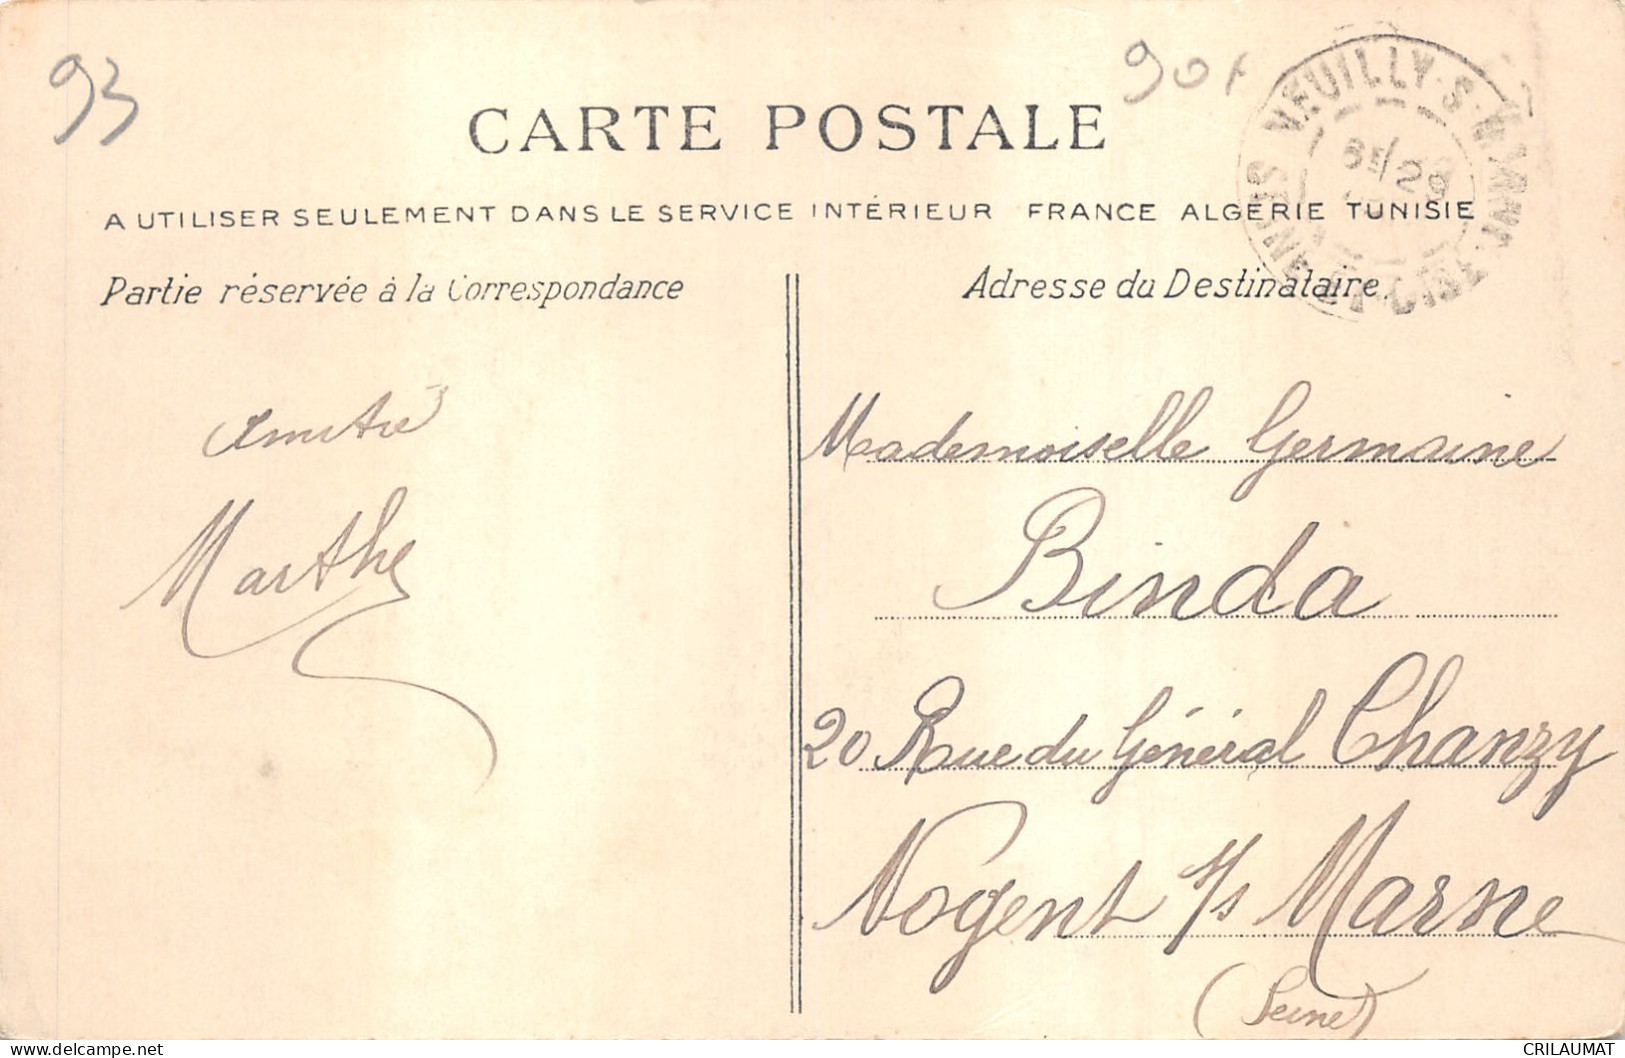 93
CARTE POSTALE
A UTILISER SEULEMENT DANS LE SERVICE INTÉRIEUR FRANCE ALGÉRIE TUNISIE
Partie réservée à la Correspondance
Adresse du Destinataire
NEUILLY-S-MARNE
SEINE-ET-OISE
29
Amitié
Marthe
Mademoiselle Germaine
Binda
20 Rue du Général Chanzy
Nogent s/s Marne
(Seine)
delcampe.net
CRILAUMAT